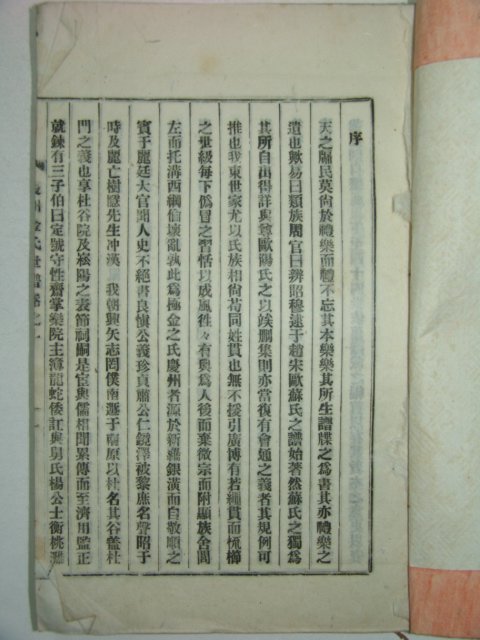 序
天之牖民莫尙於禮樂而禮不忘其本樂樂其所生譜牒之爲書其亦禮樂之
遺也歟易曰類族周官曰辨昭穆逮于趙宋歐蘇氏之譜始著然蘇氏之獨爲
其所自出得詳與尊歐陽氏之以竢刪集則亦當復有會通之義者其規例可
推也我東世家尤以氏族相尙苟同姓貫也無不援引廣博有若繩貫而梳櫛
之世級每下僞冒之習恬以成風徃々有與爲人後而棄微宗而附顯族舍閭
左而托溝西綱倫壞亂孰此爲極金之氏慶州者源於新羅銀潢而自敬順之
賓于麗廷大官聞人史不絕書良愼公義珍貞肅公仁鏡澤被黎庶名聲昭于
時及麗亡樹隱先生冲漢 我朝興矢志罔僕南遯于南原以杜名其谷葢杜
門之義也享杜谷院及崧陽之表節祠嗣是宦與儒相聞累傳而至濟用監正
就鍊有三子伯曰定號守性齋掌樂院主簿龍蛇倭訌與舅氏楊公士衡桃灘
金氏世譜